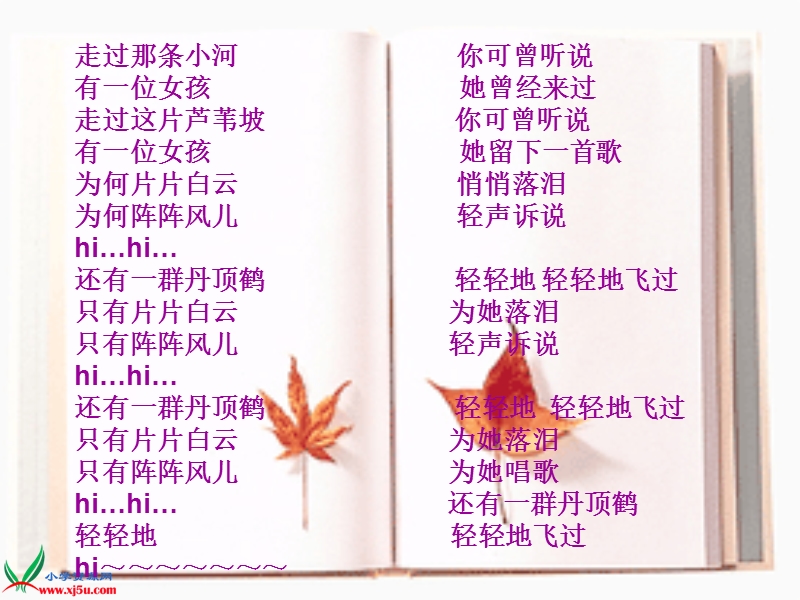 走过那条小河 你可曾听说
有一位女孩 她曾经来过
走过这片芦苇坡 你可曾听说
有一位女孩 她留下一首歌
为何片片白云 悄悄落泪
为何阵阵风儿 轻声诉说
hi…hi…
还有一群丹顶鹤 轻轻地 轻轻地飞过
只有片片白云 为她落泪
只有阵阵风儿 轻声诉说
hi…hi…
还有一群丹顶鹤 轻轻地 轻轻地飞过
只有片片白云 为她落泪
只有阵阵风儿 为她唱歌
hi…hi… 还有一群丹顶鹤
轻轻地 轻轻地飞过
hi～～～～～～～
www.xj5u.com